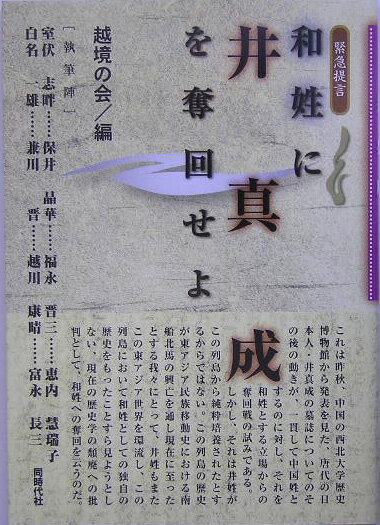 緊急提言
和姓に
井真成
を奪回せよ
越境の会/編
[執筆陣]
室伏 志畔……保井 晶華……福永 晋三……恵内 慧瑞子
白名 一雄……兼川 晋……越川 康晴……富永 長三
これは昨秋、中国の西北大学歴史
博物館から発表を見た、唐代の日
本人・井真成の墓誌についてのそ
の後の動きが、一貫して中国姓と
するのに対し、それを
和姓とする立場からの
奪回戦の試みである。
しかし、それは井姓が
この列島から純粋培養されたとす
るからではない。この列島の歴史
が東アジア民族移動史における南
船北馬の興亡を通し現在に至った
とする我々にとって、井姓もまた
この東アジア世界を環流し、この
列島において和姓としての独自の
歴史をもったことすら見ようとし
ない、現在の歴史学の頽廃への批
判として、和姓への奪回を云うのだ。
同時代社